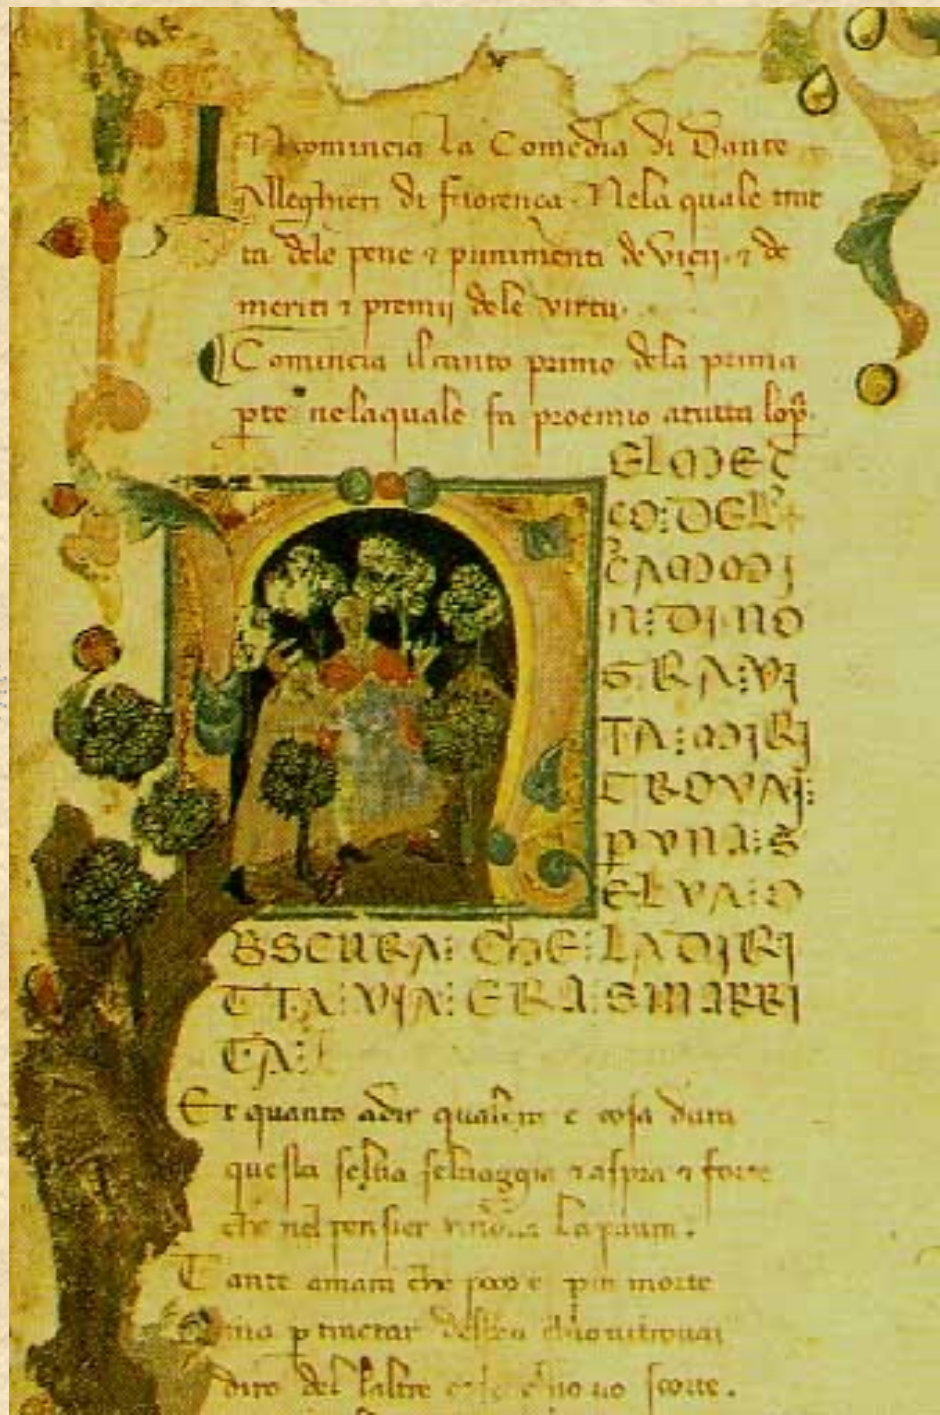 Incomincia la Comedia di Dante
Alleghieri di fiorenca. Nela quale trat
ta dele pene ⁊ punimenti de vicij. ⁊ de
meriti ⁊ premij dele virtu.
Comincia il canto primo dela prima
ꝑte nelaquale fa proemio atutta
EL MEÇ
ÇO: DEL
CAMMI
N: DI NO
STRA: VI
TA: MI RI
TROVAI:
ꝑ VNA: S
ELVA: O
BSCURA: CHE: LA DIRI
TTA: VIA: ERA: SMARRI
TA:
Et quanto adir e cosa dura
questa selua seluaggia ⁊ aspra ⁊ forte
che nel pensier la paura.
Tante amara che poco e piu morte
ꝑ tractar
diro del laltre scorte.